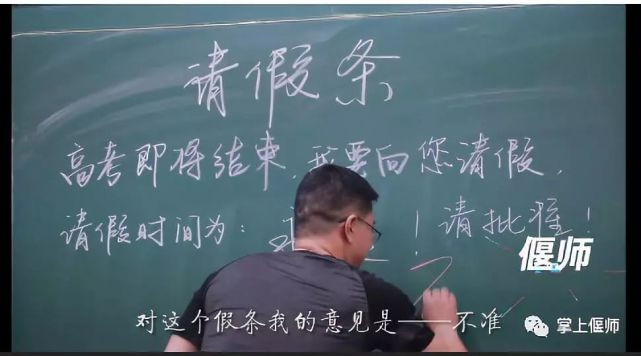 请假条
高考即将结束,我要向您请假,
请假时间为: ! 请批准!
偃师
对这个假条我的意见是——不准
掌上偃师